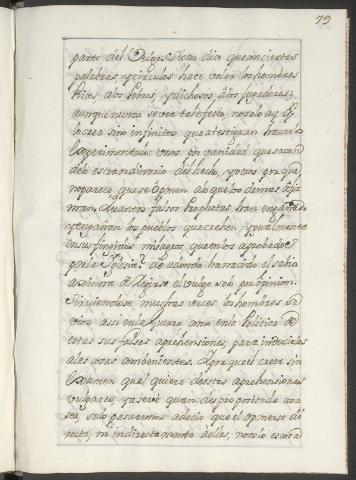 79
parte del Vulgo. Este dice que con ciertas
palabras, y circulos hace volar los hombres
Ricos a los Pobres, y dichosos a los jugadores;
aunque nunca se vea tal efecto, no solo ay q.
lo crea sino infinitos que atestiguan haverlo
experimentado: unos por vanidad que sacan
de lo extraordinario del hecho, y otros porque
no parece que se oponen a lo que los demas afir
man. Quantos falsos Prophetas han engañado
y engañan los pueblos que creehen igualmente
en sus fingidos milagros, que en los aprobados
por la Iglesia? de a donde ha nacido el sabio
a Dejarse el vulgo solo por opinion.
Sirviendose muchas veces los hombres
assi en la Guerra como en la Politica de
estas sus falsas aprehensiones para inducirlos
a las cosas combenientes. Para que el creer sin
examen que quiera de estas aprehensiones
vulgares, ya se ve quan desproporcionada cosa
sea, solo pasaremos a decir que el oponerse di
recta, ni indirectamente a ellas, no solo es cosa